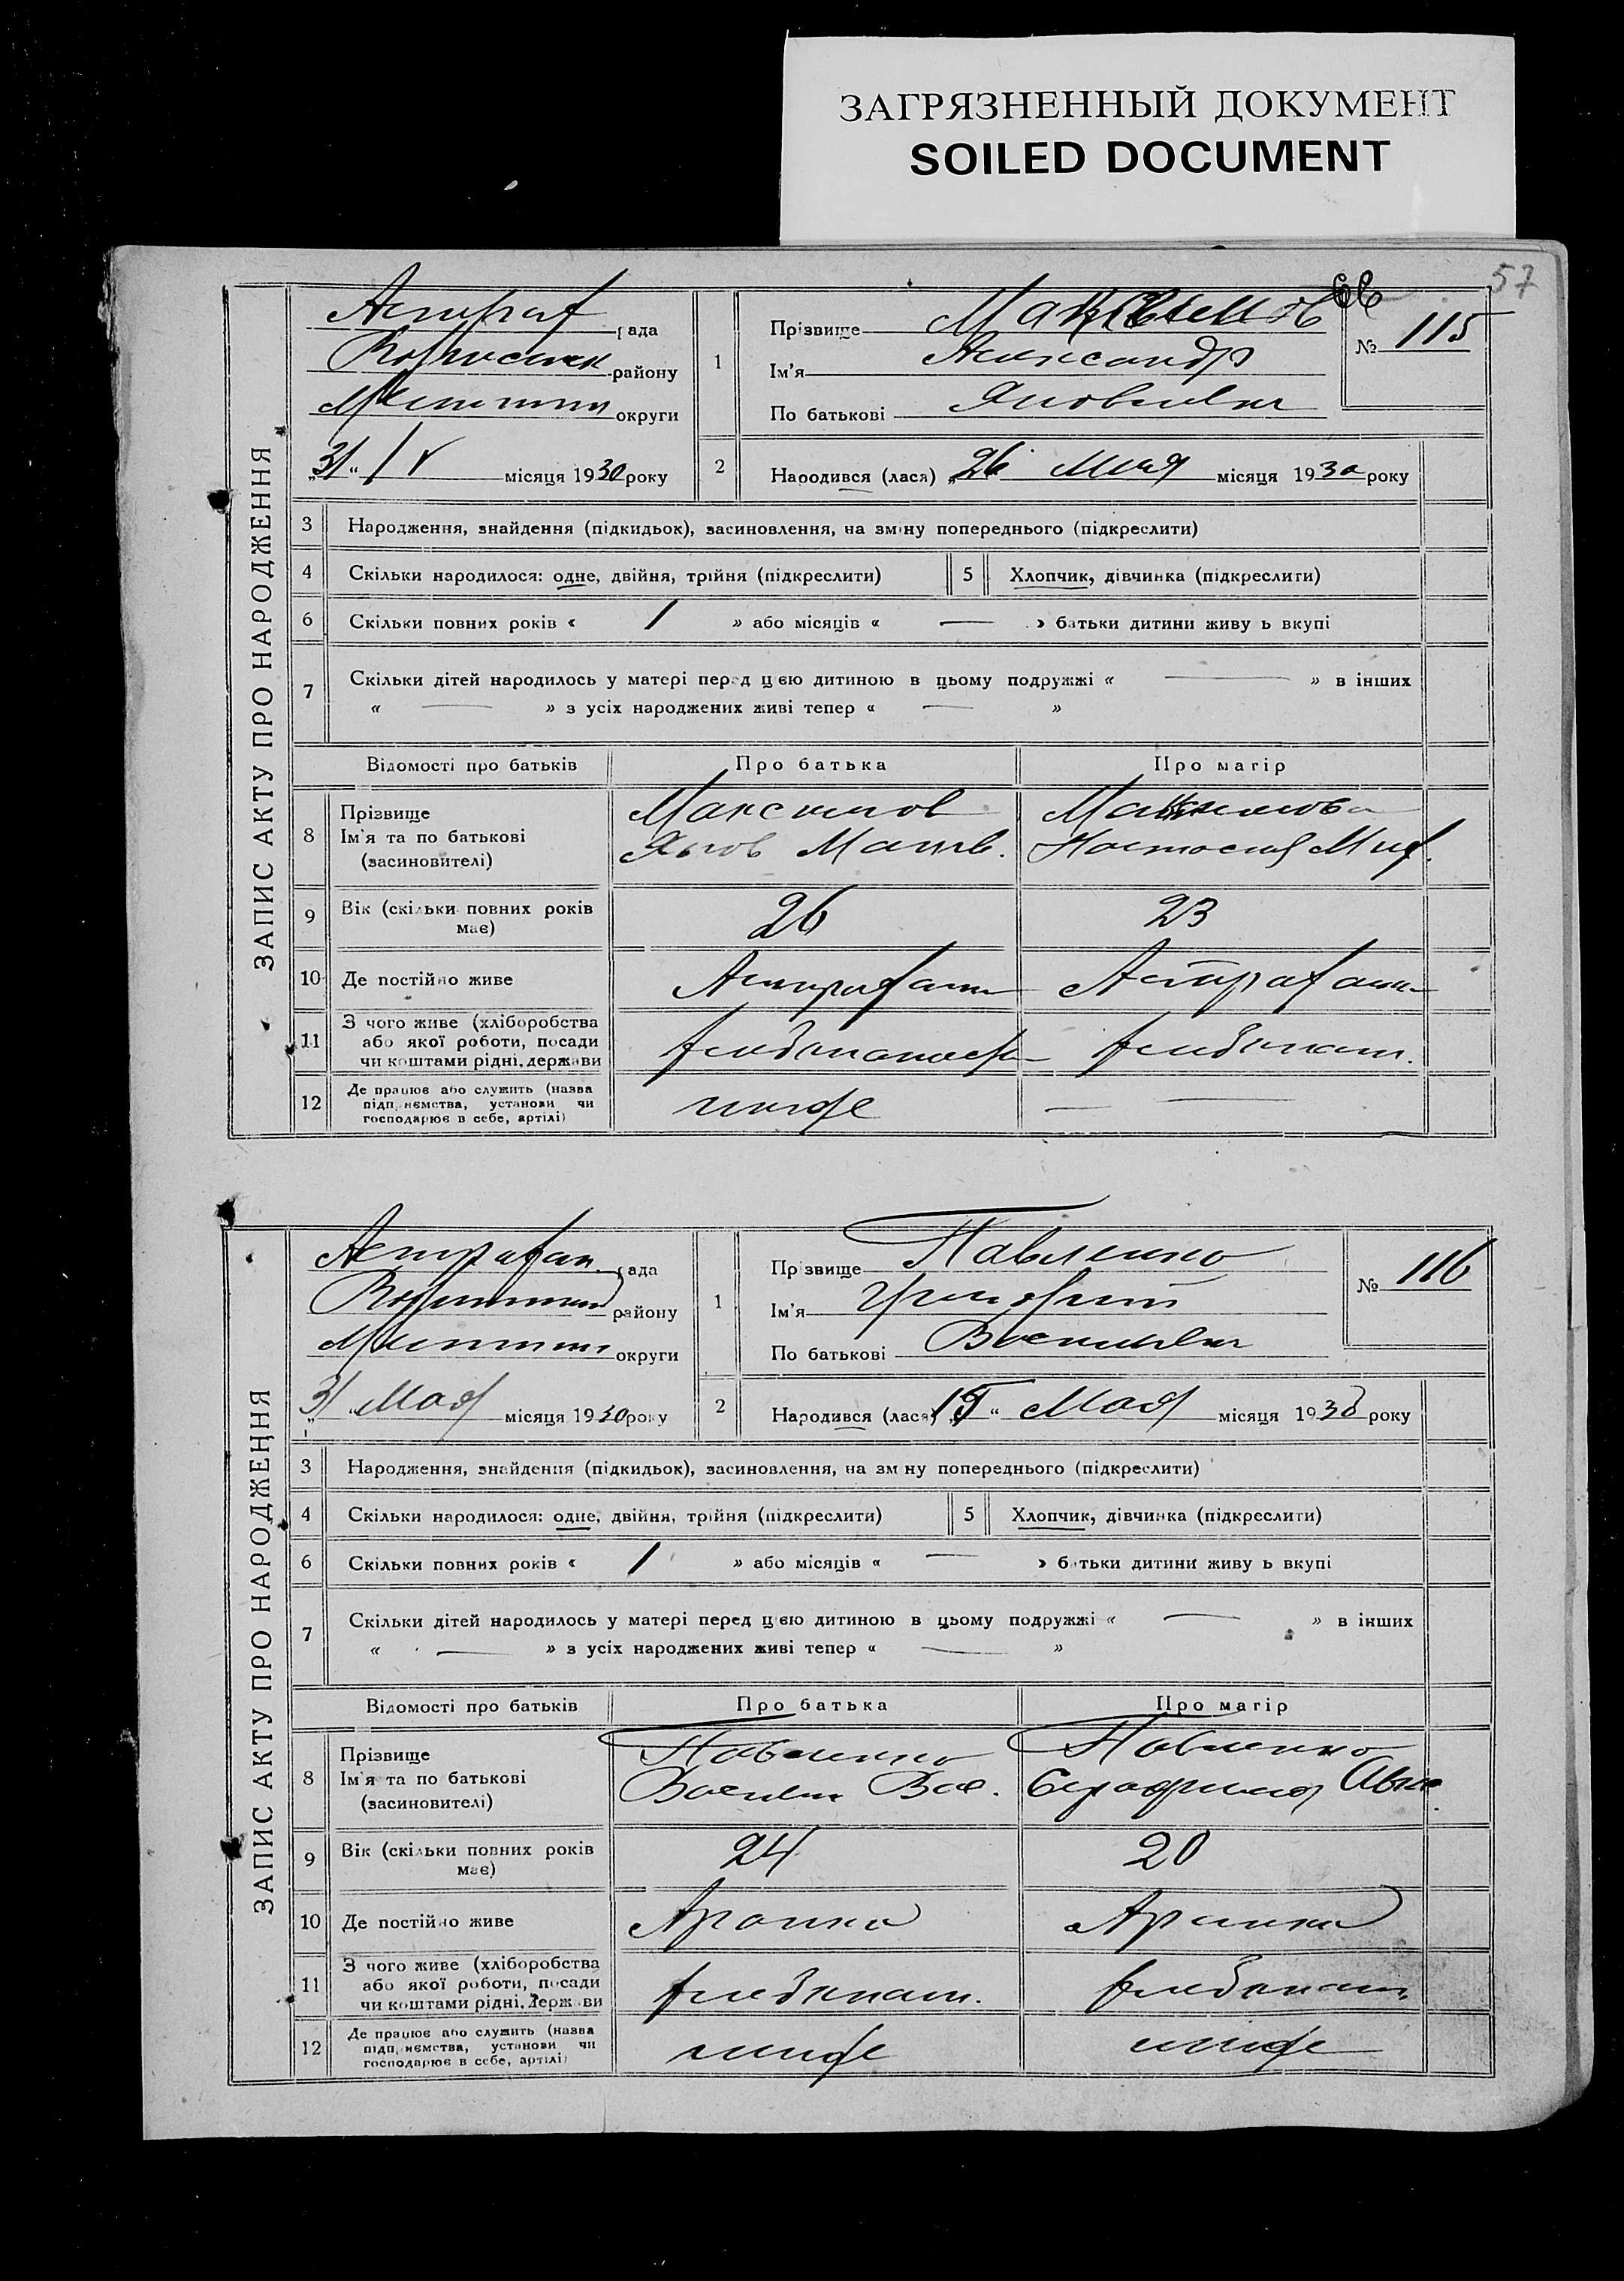 ЗАГРЯЗНЕННЫЙ ДОКУМЕНТ
SOILED DOCUMENT
57
ЗАПИС АКТУ ПРО НАРОДЖЕННЯ
Астраф рада
району
округи
31 " / V місяця 1930 року
1
Прізвище Максимов
Ім'я Александр
По батькові Яковлевич
№ 115
2
Народився (лася) „26 Мая місяця 1930 року
3 Народження, знайдення (підкидьок), засиновлення, на зміну попереднього (підкреслити)
4 Скільки народилося: одне, двійня, трійня (підкреслити)
5 Хлопчик, дівчинка (підкреслити)
6 Скільки повних років « 1 » або місяців « — » батьки дитини живу ь вкупі
7 Скільки дітей народилось у матері перед цією дитиною в цьому подружжі « — » в інших
« — » з усіх народжених живі тепер « — »
Відомості про батьків Про батька Про матір
8 Прізвище
Ім'я та по батькові
(засиновителі)
Максимов
Яков Матв.
Максимова
Настасия Мих.
9 Вік (скільки повних років має) 26 23
10 Де постійно живе Астрафанк Астрафанк
11 З чого живе (хліборобства
або якої роботи, посади
чи коштами рідні, держави
хлебопаш.
12 Де працює або служить (назва
підприємства, установи чи
господарює в себе, артілі)
— —
ЗАПИС АКТУ ПРО НАРОДЖЕННЯ
Астрафан. рада
району
округи
31 Мая місяця 1930 року
1
Прізвище Павленко
Ім'я Григорий
По батькові Васильевич
№ 116
2
Народився (лася) „15 " Мая місяця 1930 року
3 Народження, знайдення (підкидьок), засиновлення, на зм ну попереднього (підкреслити)
4 Скільки народилося: одне, двійня, трійня (підкреслити)
5 Хлопчик, дівчинка (підкреслити)
6 Скільки повних років « 1 » або місяців « — » батьки дитини живу ь вкупі
7 Скільки дітей народилось у матері перед цією дитиною в цьому подружжі « — » в інших
« — » з усіх народжених живі тепер « — »
Відомості про батьків Про батька Про матір
8 Прізвище
Ім'я та по батькові
(засиновителі)
Павленко
Васили Вас.
Павленко
Серафима
9 Вік (скільки повних років має) 24 20
10 Де постійно живе
11 З чого живе (хліборобства
або якої роботи, посади
чи коштами рідні, держави
хлебопаш. хлебопаш.
12 Де працює або служить (назва
підприємства, установи чи
господарює в себе, артілі)